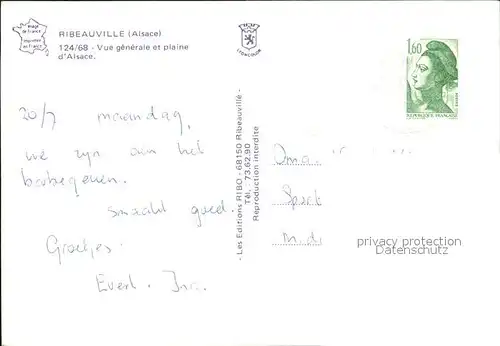 image de France
RIBEAUVILLE (Alsace)
124/68 - Vue générale et plaine
d'Alsace.
LYONCOLOR
1,60
REPUBLIQUE FRANÇAISE
20/7 maandag,
we zyn aan het
barbequeuen.
smaakt goed.
Groetjes.
Evert.
- Les Editions RIBO - 68150 Ribeauvillé -
Tél. 73.62.90
Reproduction interdite
Oma
Sport
privacy protection
Datenschutz